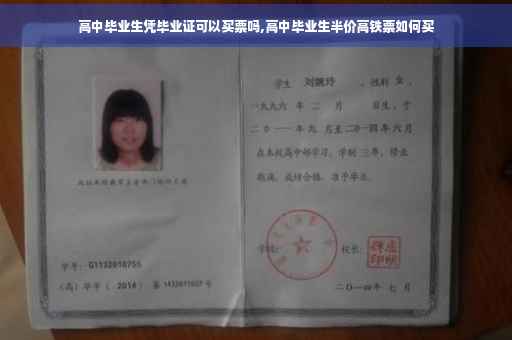 高中毕业生凭毕业证可以买票吗,高中毕业生半价高铁票如何买
学生 刘婉玲 ,性别 女 ,
一九九六 年 二 月 日生,于
二〇一一年九 月至二〇一四年六月
在本校高中部学习,学制 三年,修业
期满,成绩合格,准予毕业。
学校: 校长:
学号: G1132010755
(高)毕字( 2014 )第 1432011027 号
二〇一四年 七 月